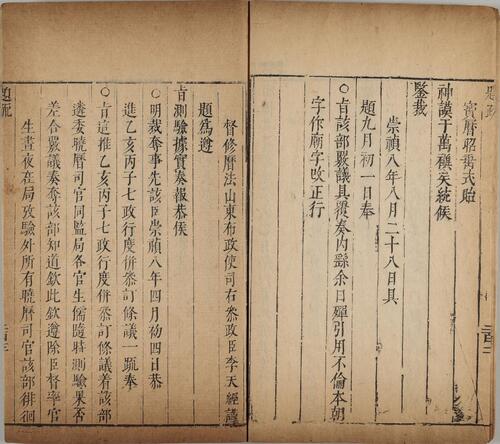 寳曆昭垂式貽
神謨于萬禩矣統候
鑒裁
崇禎八年八月二十八日具
題九月初一日奉
○旨該部嚴議具覆奏內繇余日躔引用不倫本朝
字作廟字改正行
督修曆法山東布政使司右叅政臣李天經謹
題爲遵
旨測驗據實奏報恭候
○明裁奪事先該臣崇禎八年四月初四日恭
進乙亥丙子七政行度併叅訂條議一疏奉
○旨這推乙亥丙子七政行度併叅訂條議着該部
遴委曉曆司官同監局各官生儒隨時測驗果否
差合嚴議奏奪該部知道欽此欽遵除臣督率官
生晝夜在局攷驗外所有曉曆司官該部徘徊